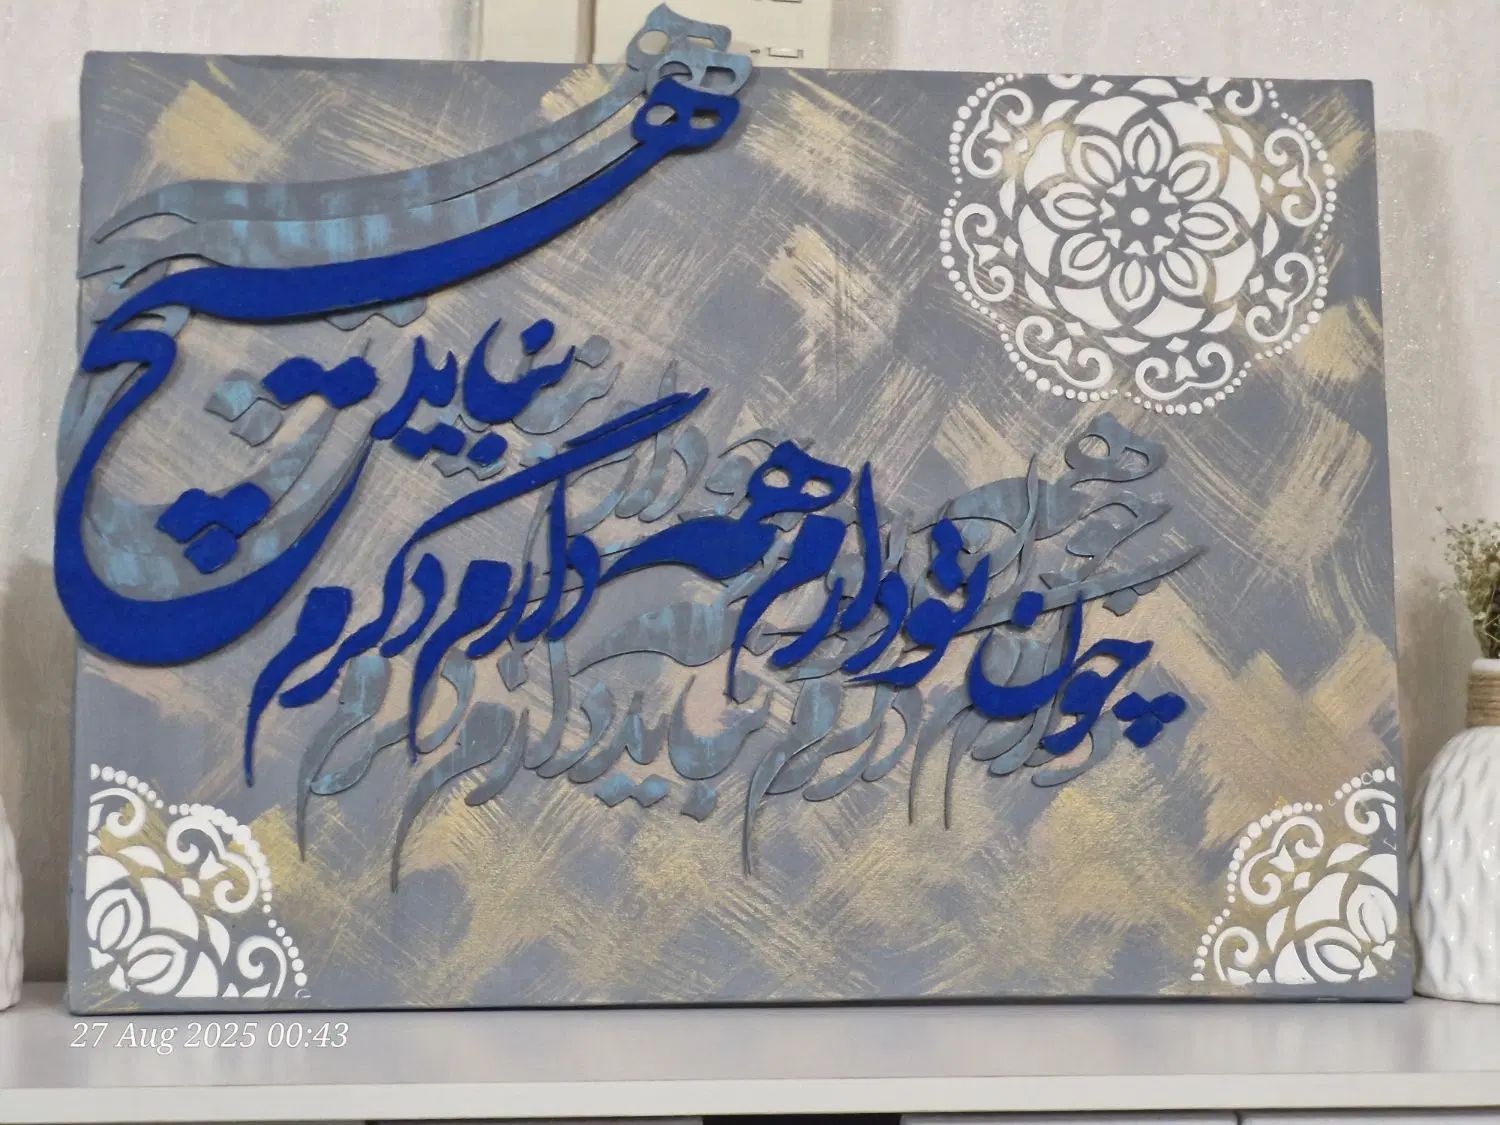 چون تو دارم همه دارم دگرم هیچ نباید
27 Aug 2025 00:43